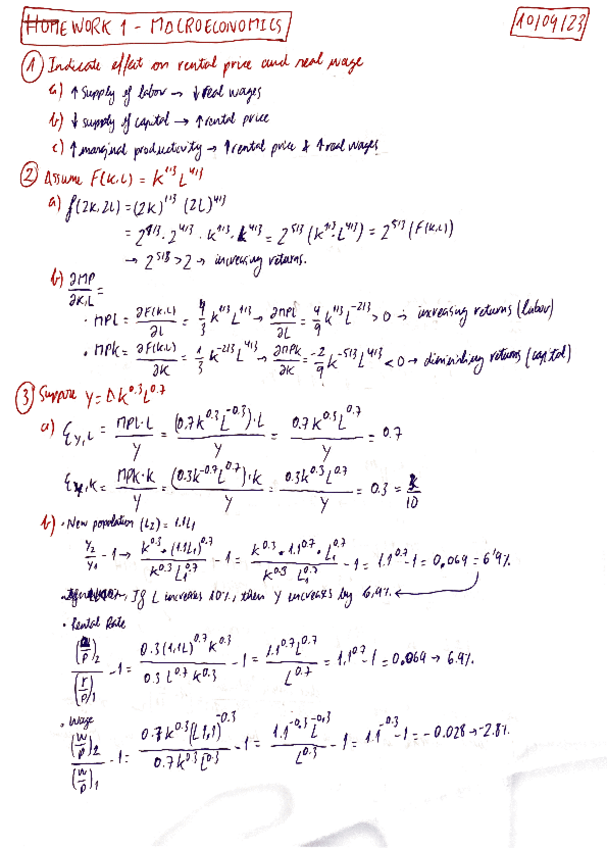 HOMEWORK 1 - MACROECONOMICS
10/09/23
1 Indicate effect on rental price and real wage
a) ↑ Supply of labor → ↓ real wages
b) ↓ supply of capital → ↑ rental price
c) ↑ marginal productivity → ↑ rental price & ↑ real wages
2 Assume F(K,L) = K^1/3 L^4/3
a) f(2K, 2L) = (2K)^1/3 (2L)^4/3
= 2^1/3 · 2^4/3 · K^1/3 · L^4/3 = 2^5/3 (K^1/3 · L^4/3) = 2^5/3 (F(K,L))
→ 2^5/3 > 2 → increasing returns.
b) ∂MP/∂K,L =
· MPL = ∂F(K,L)/∂L = 4/3 K^1/3 L^1/3 → ∂MPL/∂L = 4/9 K^1/3 L^-2/3 > 0 → increasing returns (labor)
· MPK = ∂F(K,L)/∂K = 1/3 K^-2/3 L^4/3 → ∂MPK/∂K = -2/9 K^-5/3 L^4/3 < 0 → diminishing returns (capital)
3 Suppose Y = A K^0.3 L^0.7
a) ξY,L = MPL·L/Y = (0.7K^0.3 L^-0.3)·L/Y = 0.7K^0.3 L^0.7/Y = 0.7
ξY,K = MPK·K/Y = (0.3K^-0.7 L^0.7)·K/Y = 0.3K^0.3 L^0.7/Y = 0.3
b) · New population (L2) = 1.1L1
Y2/Y1 - 1 → K^0.3 · (1.1L1)^0.7 / K^0.3 L1^0.7 - 1 = K^0.3 · 1.1^0.7 · L1^0.7 / K^0.3 L1^0.7 - 1 = 1.1^0.7 - 1 = 0.069 = 6.9%
If L increases 10%, then Y increases by 6.9%
· Rental Rate
(R/P)2 / (r/p)1 - 1 = 0.3(1.1L)^0.7 K^0.3 / 0.3 L^0.7 K^0.3 - 1 = 1.1^0.7 L^0.7 / L^0.7 = 1.1^0.7 - 1 = 0.069 → 6.9%.
· Wage
(W/P)2 / (W/P)1 - 1 = 0.7K^0.3 (L1.1)^-0.3 / 0.7K^0.3 L^0.3 - 1 = 1.1^-0.3 L^-0.3 / L^0.3 - 1 = 1.1^-0.3 - 1 = -0.028 → -2.8%